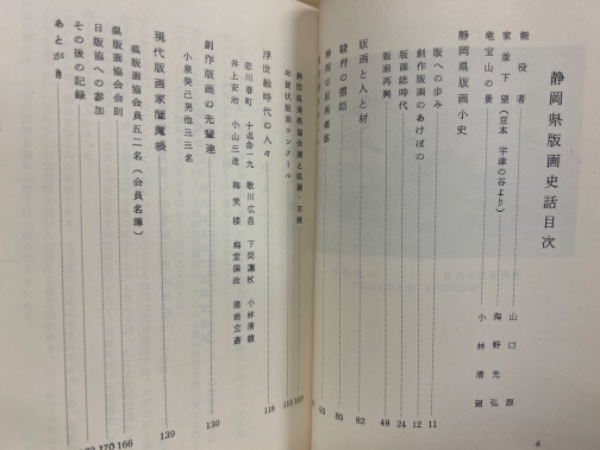 静岡県版画史話目次
能役者 山口源
家並下望（豆本 宇津の谷より） 海野光弘
竜宝山の景 小林清親
静岡県版画小史
版への歩み 11
創作版画のあけぼの 12
版画誌時代 24
版画再興 49
版画と人と材 82
駿府の摺師 85
静岡の版画 93
静岡県美術協会展と県展・市展 107
年賀状版画コンクール 115
浮世絵時代の人々 118
恋川春町 十返舎一九 歌川広昌 下間 小林清親
井上安治 小山三造 梅笑楼 梅堂国政 玄斎
創作版画の先輩達 130
小泉癸己男他三三名
現代版画家閻魔帳 139
県版画協会員五二名（会員名簿）
県版画協会会則 166
日版協への参加 170
その後の記録
あとがき
8